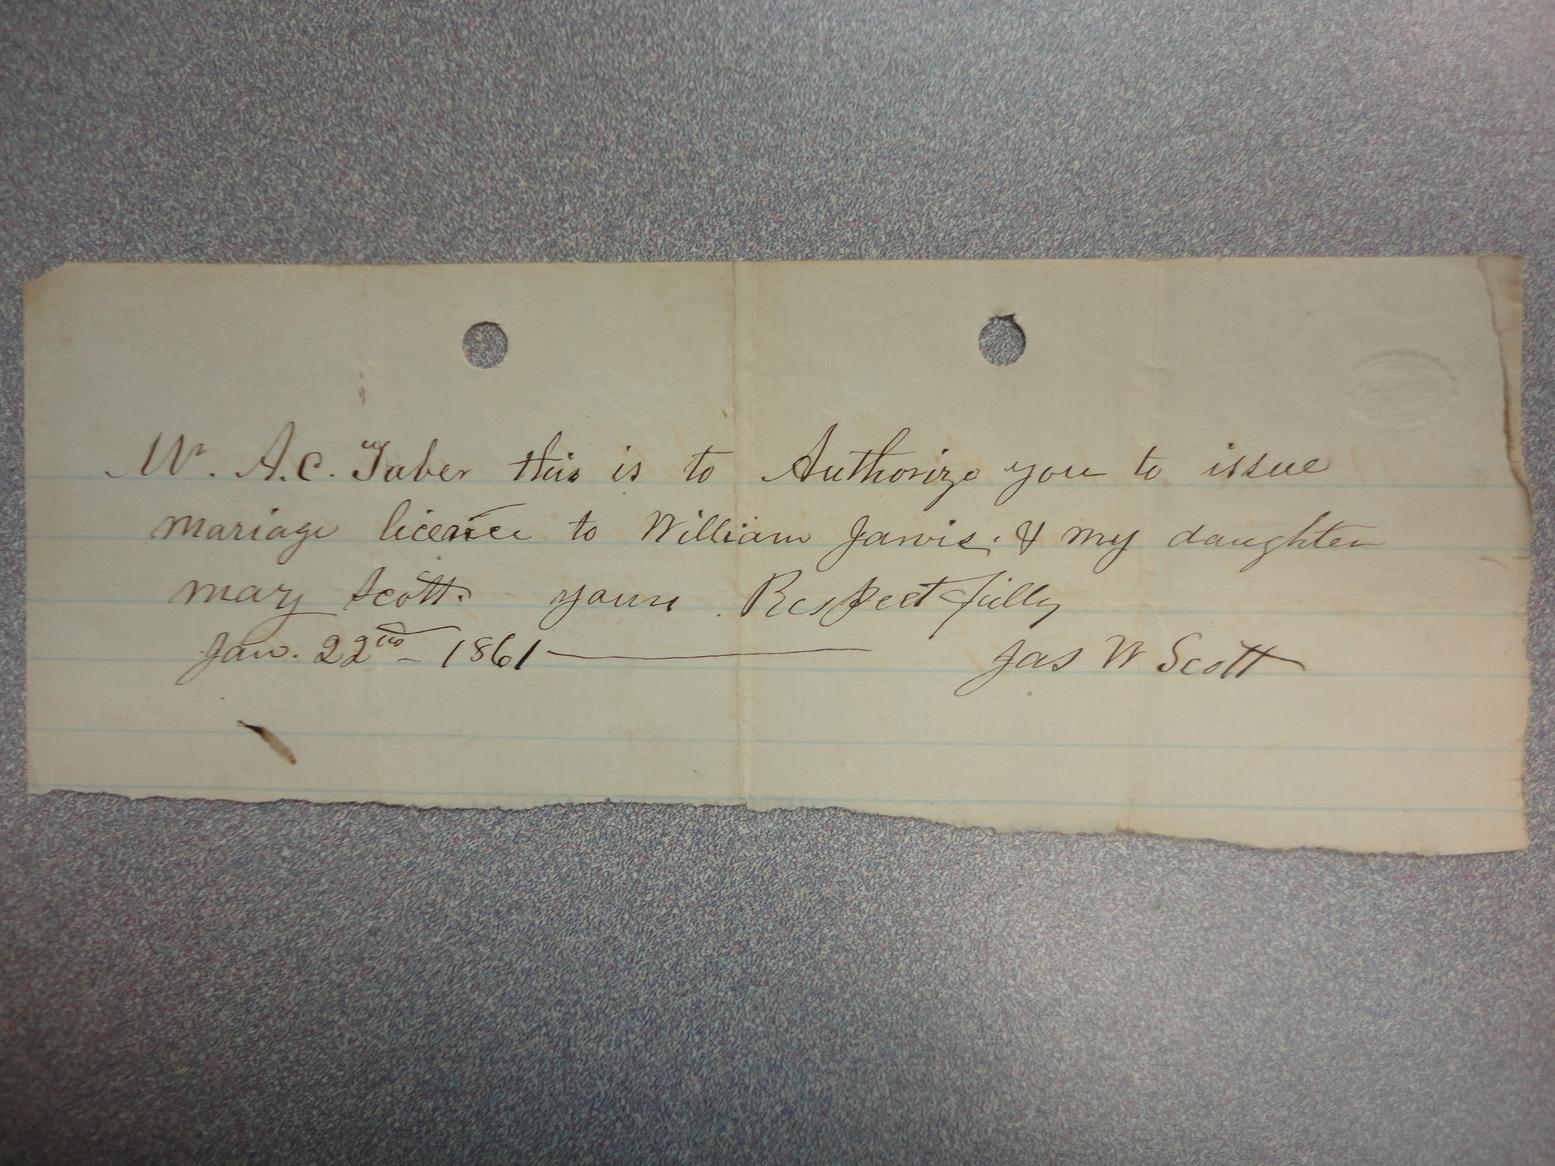 Mr. A.C. Taber this is to Authorize you to issue
mariage licence to William Jarvis. & my daughter
mary Scott. yours Respectfully
Jan. 22nd - 1861 Jas W Scott